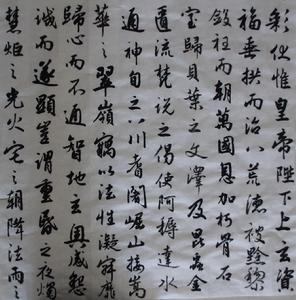 彩伏惟皇帝陛下上玄資
福垂拱而治八荒德被黔黎
斂衽而朝萬國恩加朽骨石
室歸貝葉之文澤及昆蟲金
匱流梵說之偈使阿耨達水
通神甸之八川耆闍崛山接嵩
華之翠嶺竊以法性凝寂靡
歸心而不通智地玄奧感懇
誠而遂顯豈謂重昏之夜燭
慧炬之光火宅之朝降法雨之